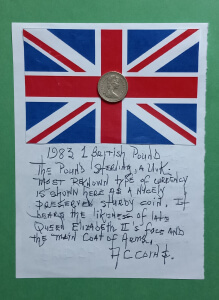 1983 1 British Pound
The Pound Sterling, a U.K.
most reknown type of currency
is shown here as a nicely
preserved sturdy coin. It
bears the likness of late
Queen Elizabeth II's face and
the main Coat of Arms.
ACCOIN